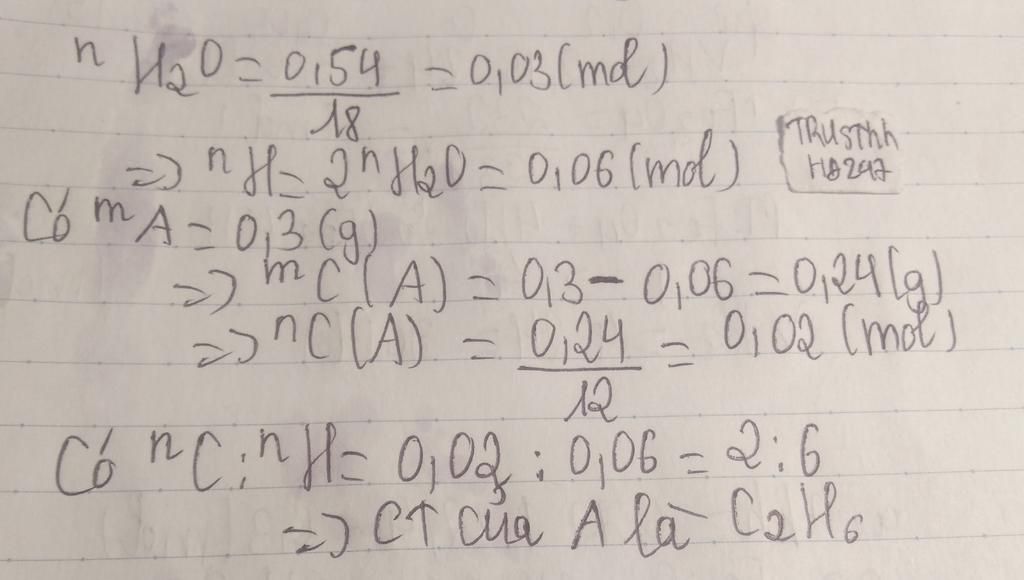 nH2O = 0,54/18 = 0,03 (mol)
=> nH = 2nH2O = 0,06 (mol)
TRUSThh
HB247
Có mA = 0,3 (g)
=> mC(A) = 0,3 - 0,06 = 0,24 (g)
=> nC(A) = 0,24/12 = 0,02 (mol)
Có nC : nH = 0,02 : 0,06 = 2 : 6
=> CT của A là C2H6